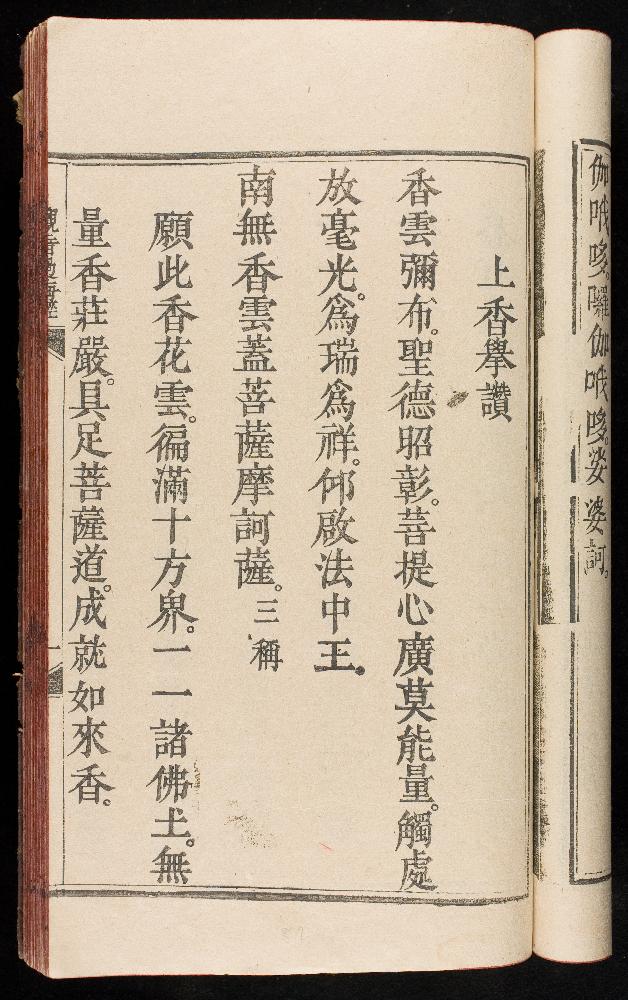 伽哦哆。囉伽哦哆。娑婆訶。
上香舉讚
香雲彌布。聖德昭彰。菩提心廣莫能量。觸處
放毫光。爲瑞爲祥。仰啟法中王。
南無香雲蓋菩薩摩訶薩。三稱
願此香花雲。徧滿十方界。一一諸佛土。無
量香莊嚴。具足菩薩道。成就如來香。